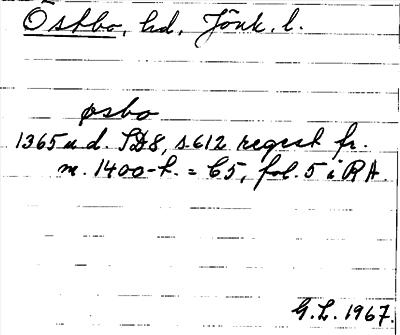 Östbo, hd, Jönk. l.
øsbo
1365 u.d. SD8, s. 612 regest fr.
m. 1400-t. = C5, fol. 5 i RA.
G.L. 1967.